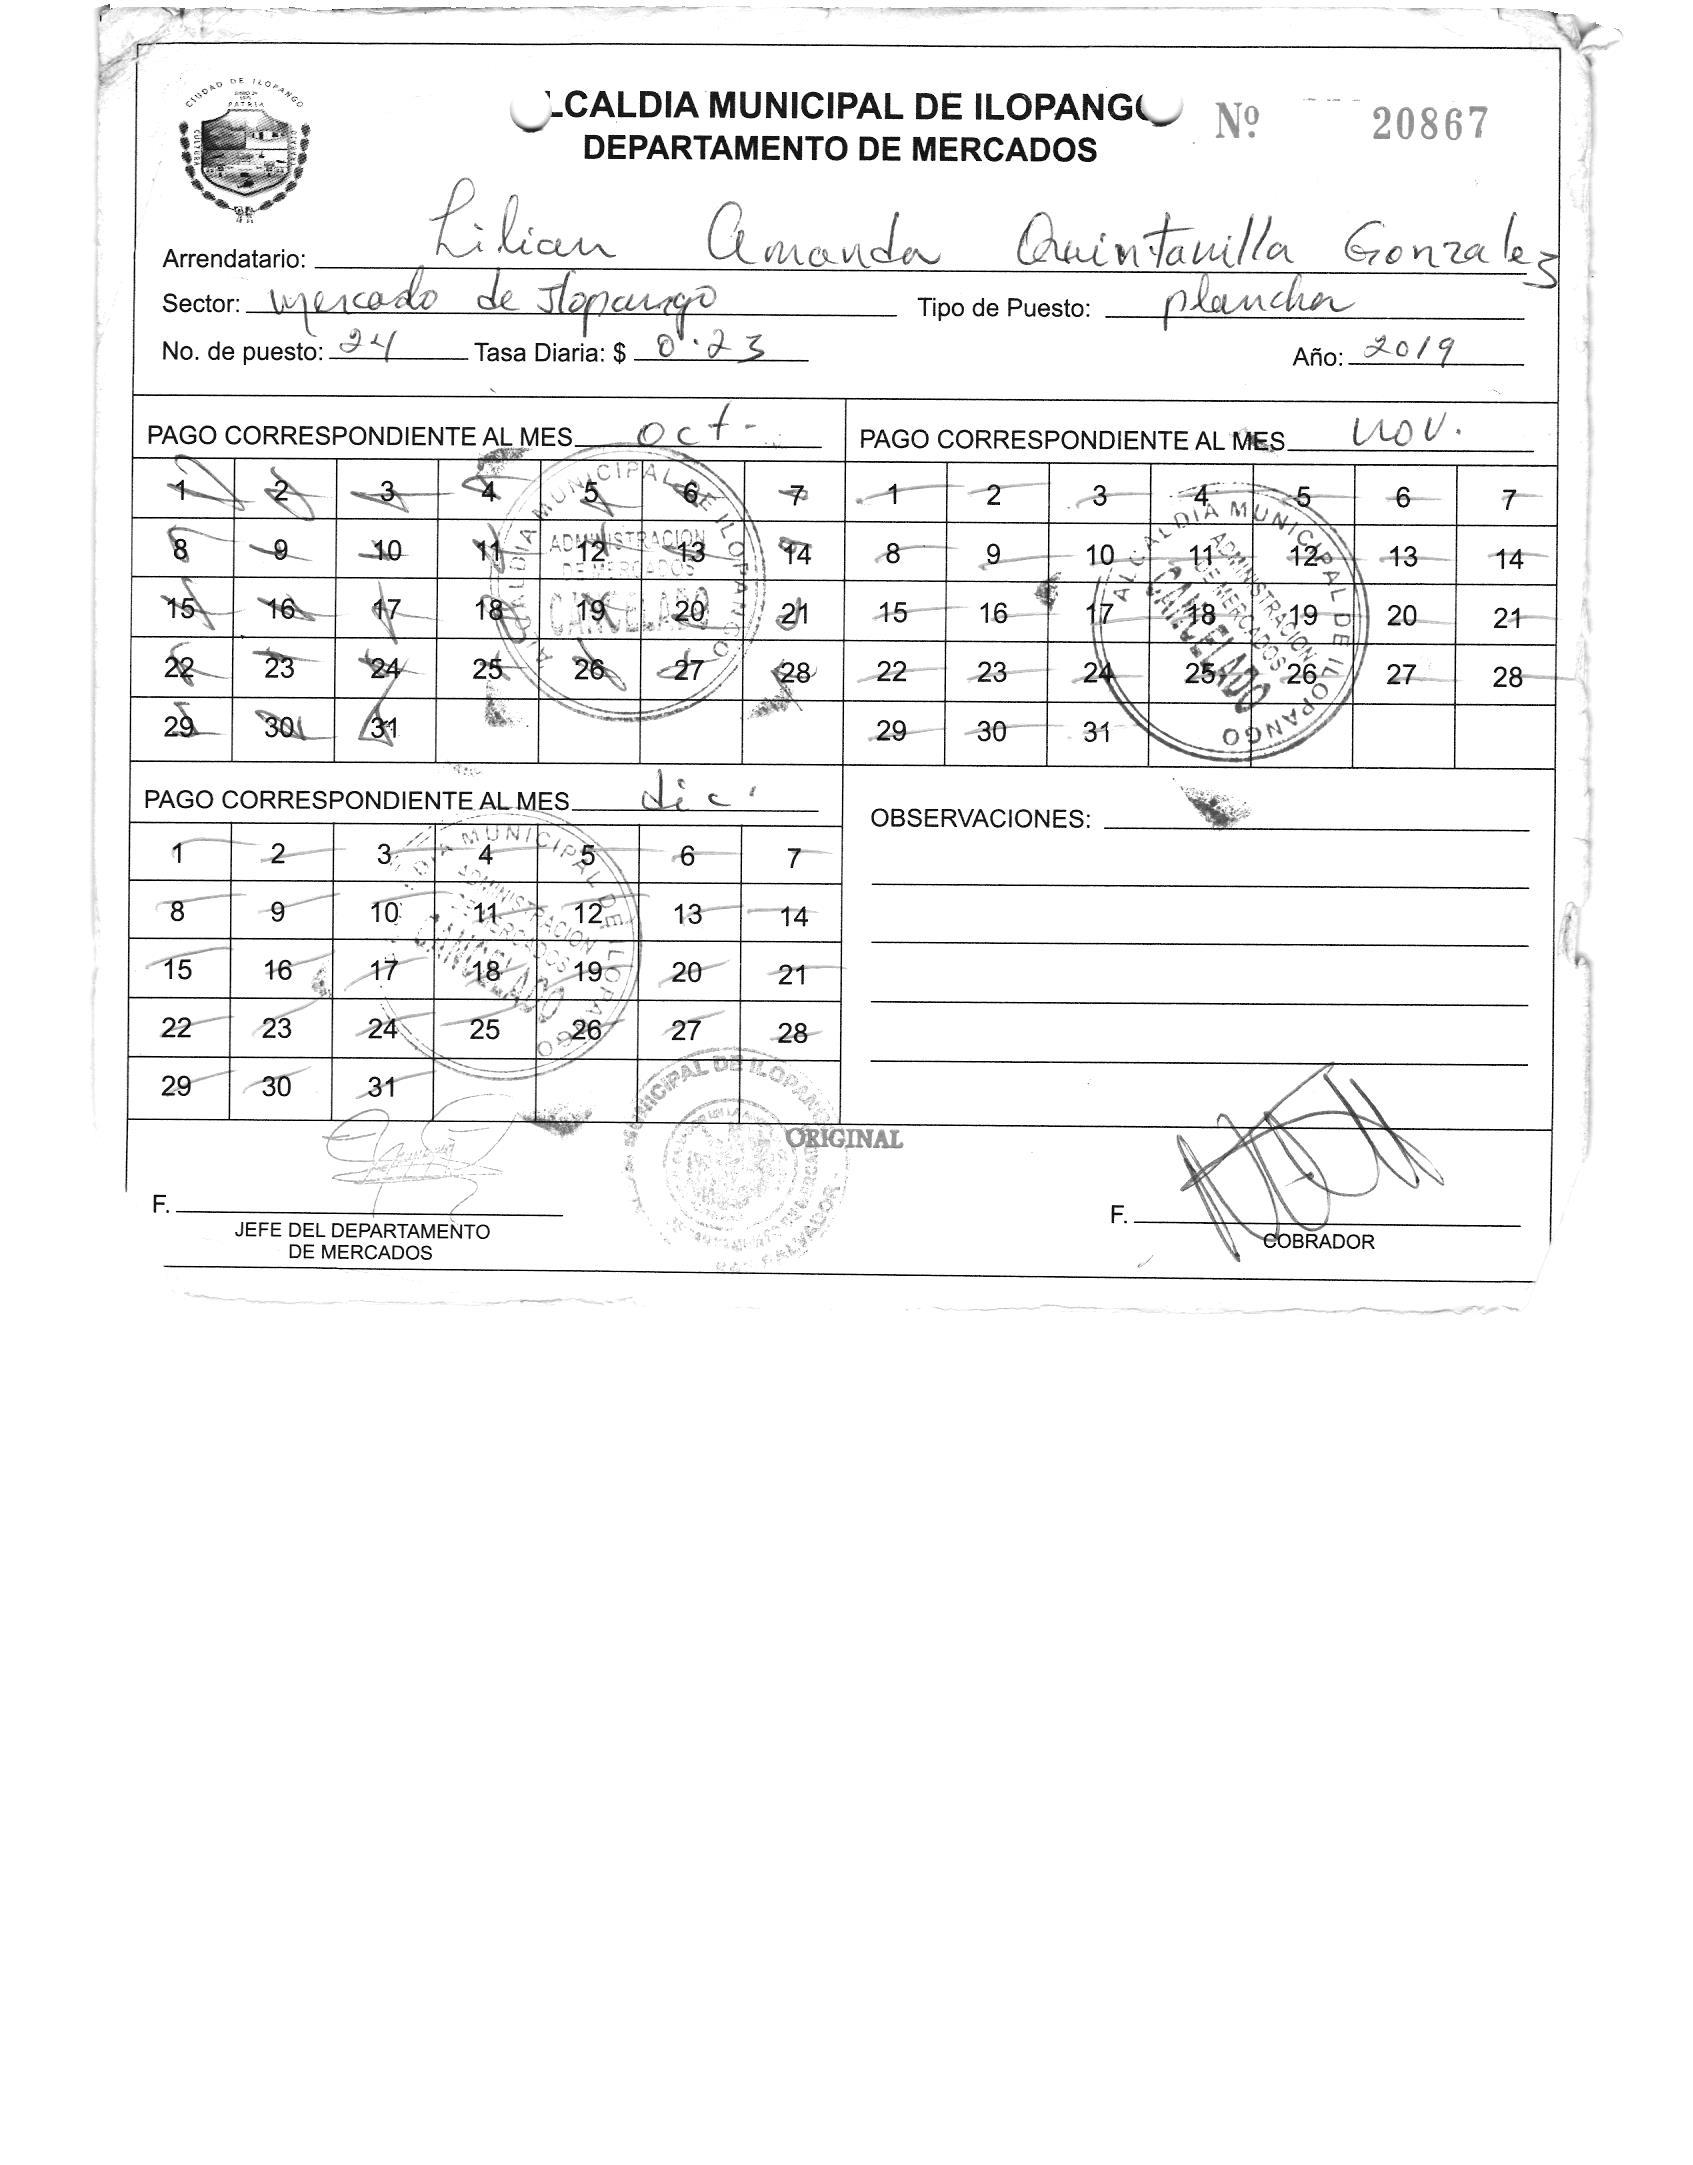 CIUDAD DE ILOPANGO
PATRIA
CULTURA
LCALDIA MUNICIPAL DE ILOPANGO
DEPARTAMENTO DE MERCADOS
Nº 20867
Arrendatario: Lilian Amanda Quintanilla Gonzalez
Sector: mercado de Ilopango Tipo de Puesto: plancha
No. de puesto: 24 Tasa Diaria: $ 0.23 Año: 2019
PAGO CORRESPONDIENTE AL MES oct-
1 2 3 4 5 6 7
8 9 10 11 12 13 14
15 16 17 18 19 20 21
22 23 24 25 26 27 28
29 30 31
ALCALDIA MUNICIPAL DE ILOPANGO
ADMINISTRACION
DE MERCADOS
CANCELADO
PAGO CORRESPONDIENTE AL MES nov.
1 2 3 4 5 6 7
8 9 10 11 12 13 14
15 16 17 18 19 20 21
22 23 24 25 26 27 28
29 30 31
ALCALDIA MUNICIPAL DE ILOPANGO
ADMINISTRACION
DE MERCADOS
CANCELADO
PAGO CORRESPONDIENTE AL MES dic.
1 2 3 4 5 6 7
8 9 10 11 12 13 14
15 16 17 18 19 20 21
22 23 24 25 26 27 28
29 30 31
DIA MUNICIPAL DE ILOPANGO
ADMINISTRACION
DE MERCADOS
CANCELADO
OBSERVACIONES:
MUNICIPAL DE ILOPANGO
SAN SALVADOR
ORIGINAL
F.
JEFE DEL DEPARTAMENTO
DE MERCADOS
F.
COBRADOR